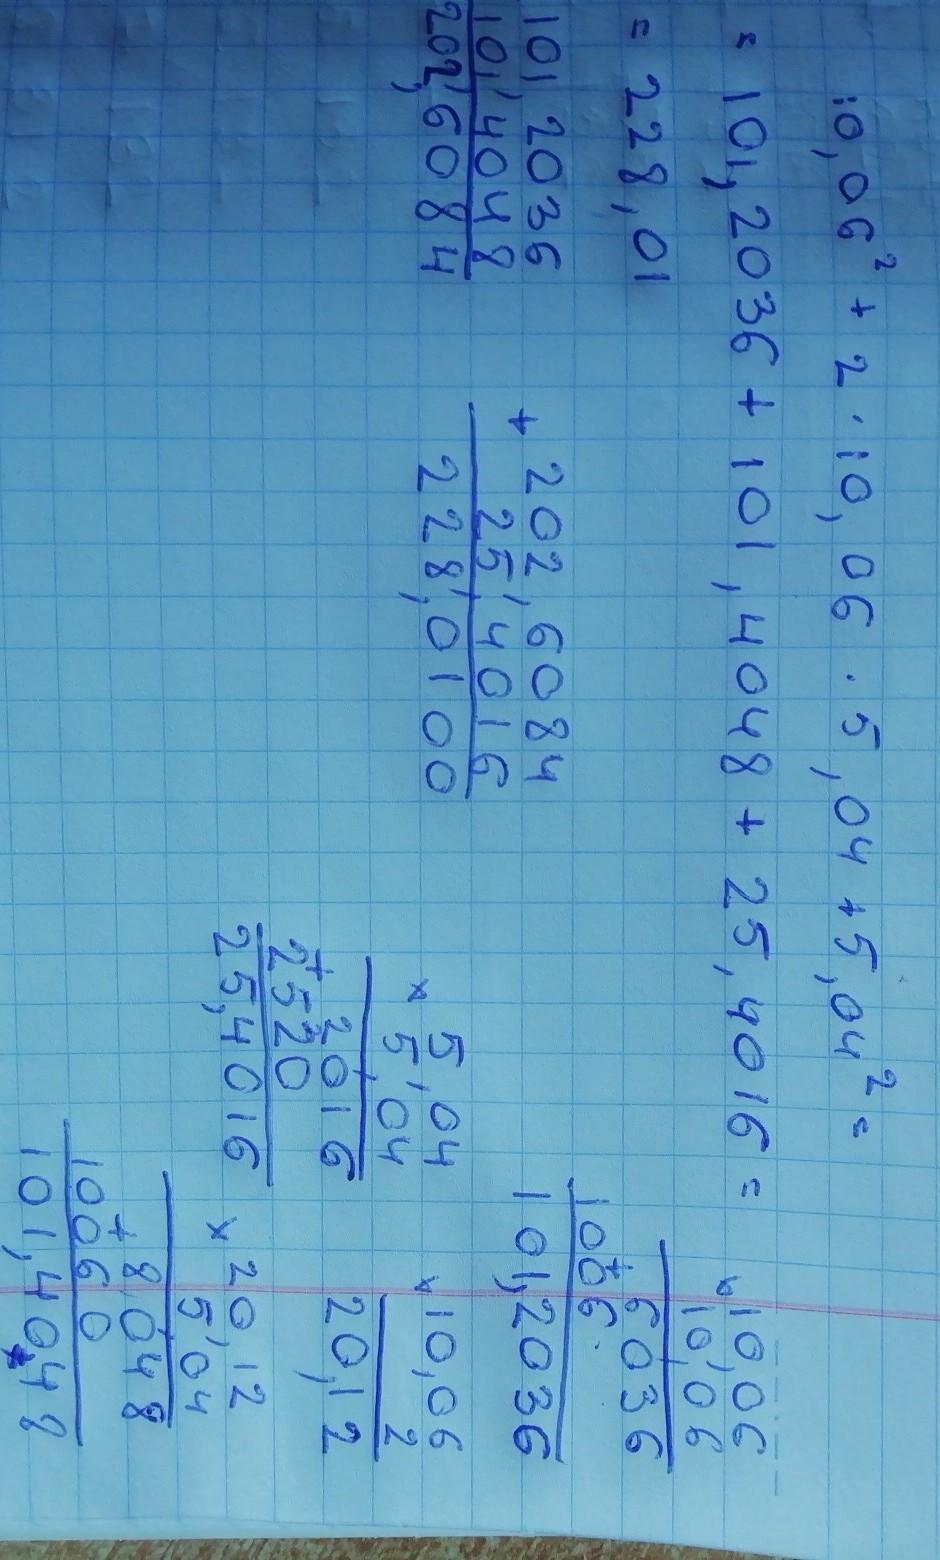 10,06² + 2 · 10,06 · 5,04 + 5,04² =
= 101,2036 + 101,4048 + 25,4016 =
= 228,01
101,2036
101,4048
202,6084
+ 202,6084
25,4016
228,0100
× 5,04
5,04
2016
+
2520
25,4016
× 10,06
10,06
6036
+
1006
101,2036
× 10,06
2
20,12
× 20,12
5,04
8048
+
10060
101,4048